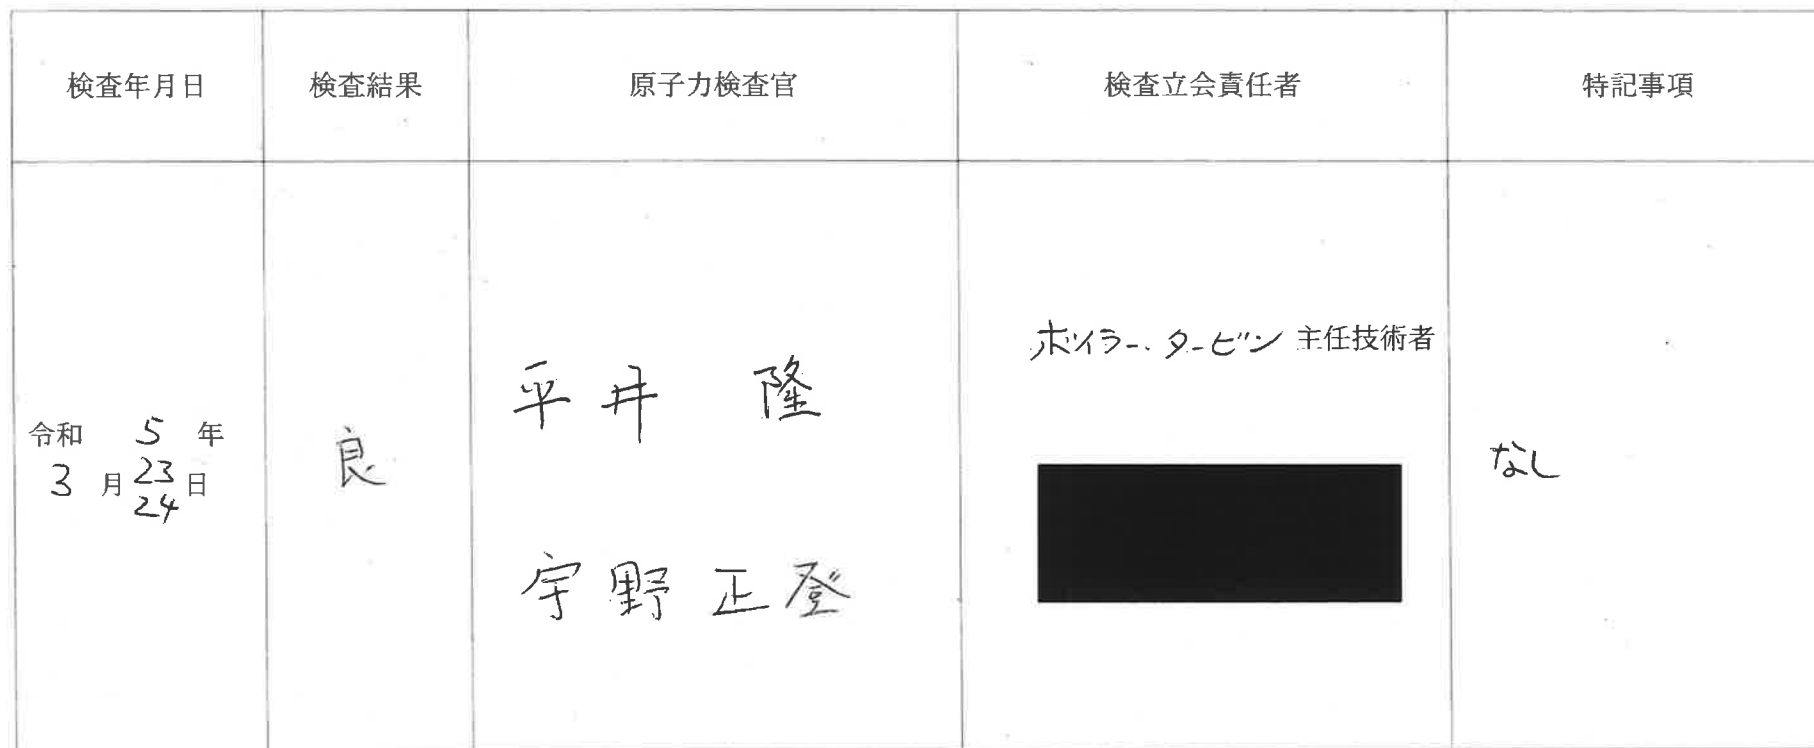 検査年月日
検査結果
原子力検査官
検査立会責任者
特記事項
令和 5 年
3 月 23 日
24
良
平井 隆
宇野正登
ボイラー・タービン 主任技術者
なし